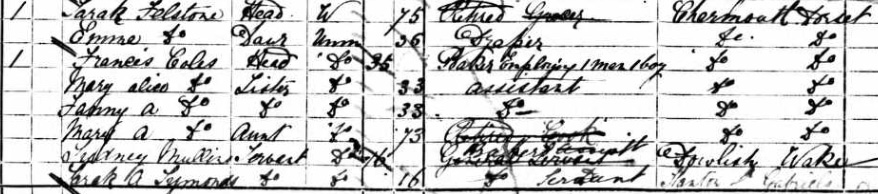 1 Sarah Felstone Head W 75 Retired Grocer Chermouth Dorset
Emma Do Daur Unm 36 Draper Do Do
1 Francis Coles Head Do 35 Baker Employing 1 man 1 boy Do Do
Mary alice Do Sister Do 33 assistant Do Do
Fanny A Do Do Do 33 Do Do Do
Mary A Do Aunt Do 73 Retired Cook Do Do
Sydney Mullins Servant Do 16 General Servant Dowlish Wake
Sarah A Symonds Do Do 16 Do Servant